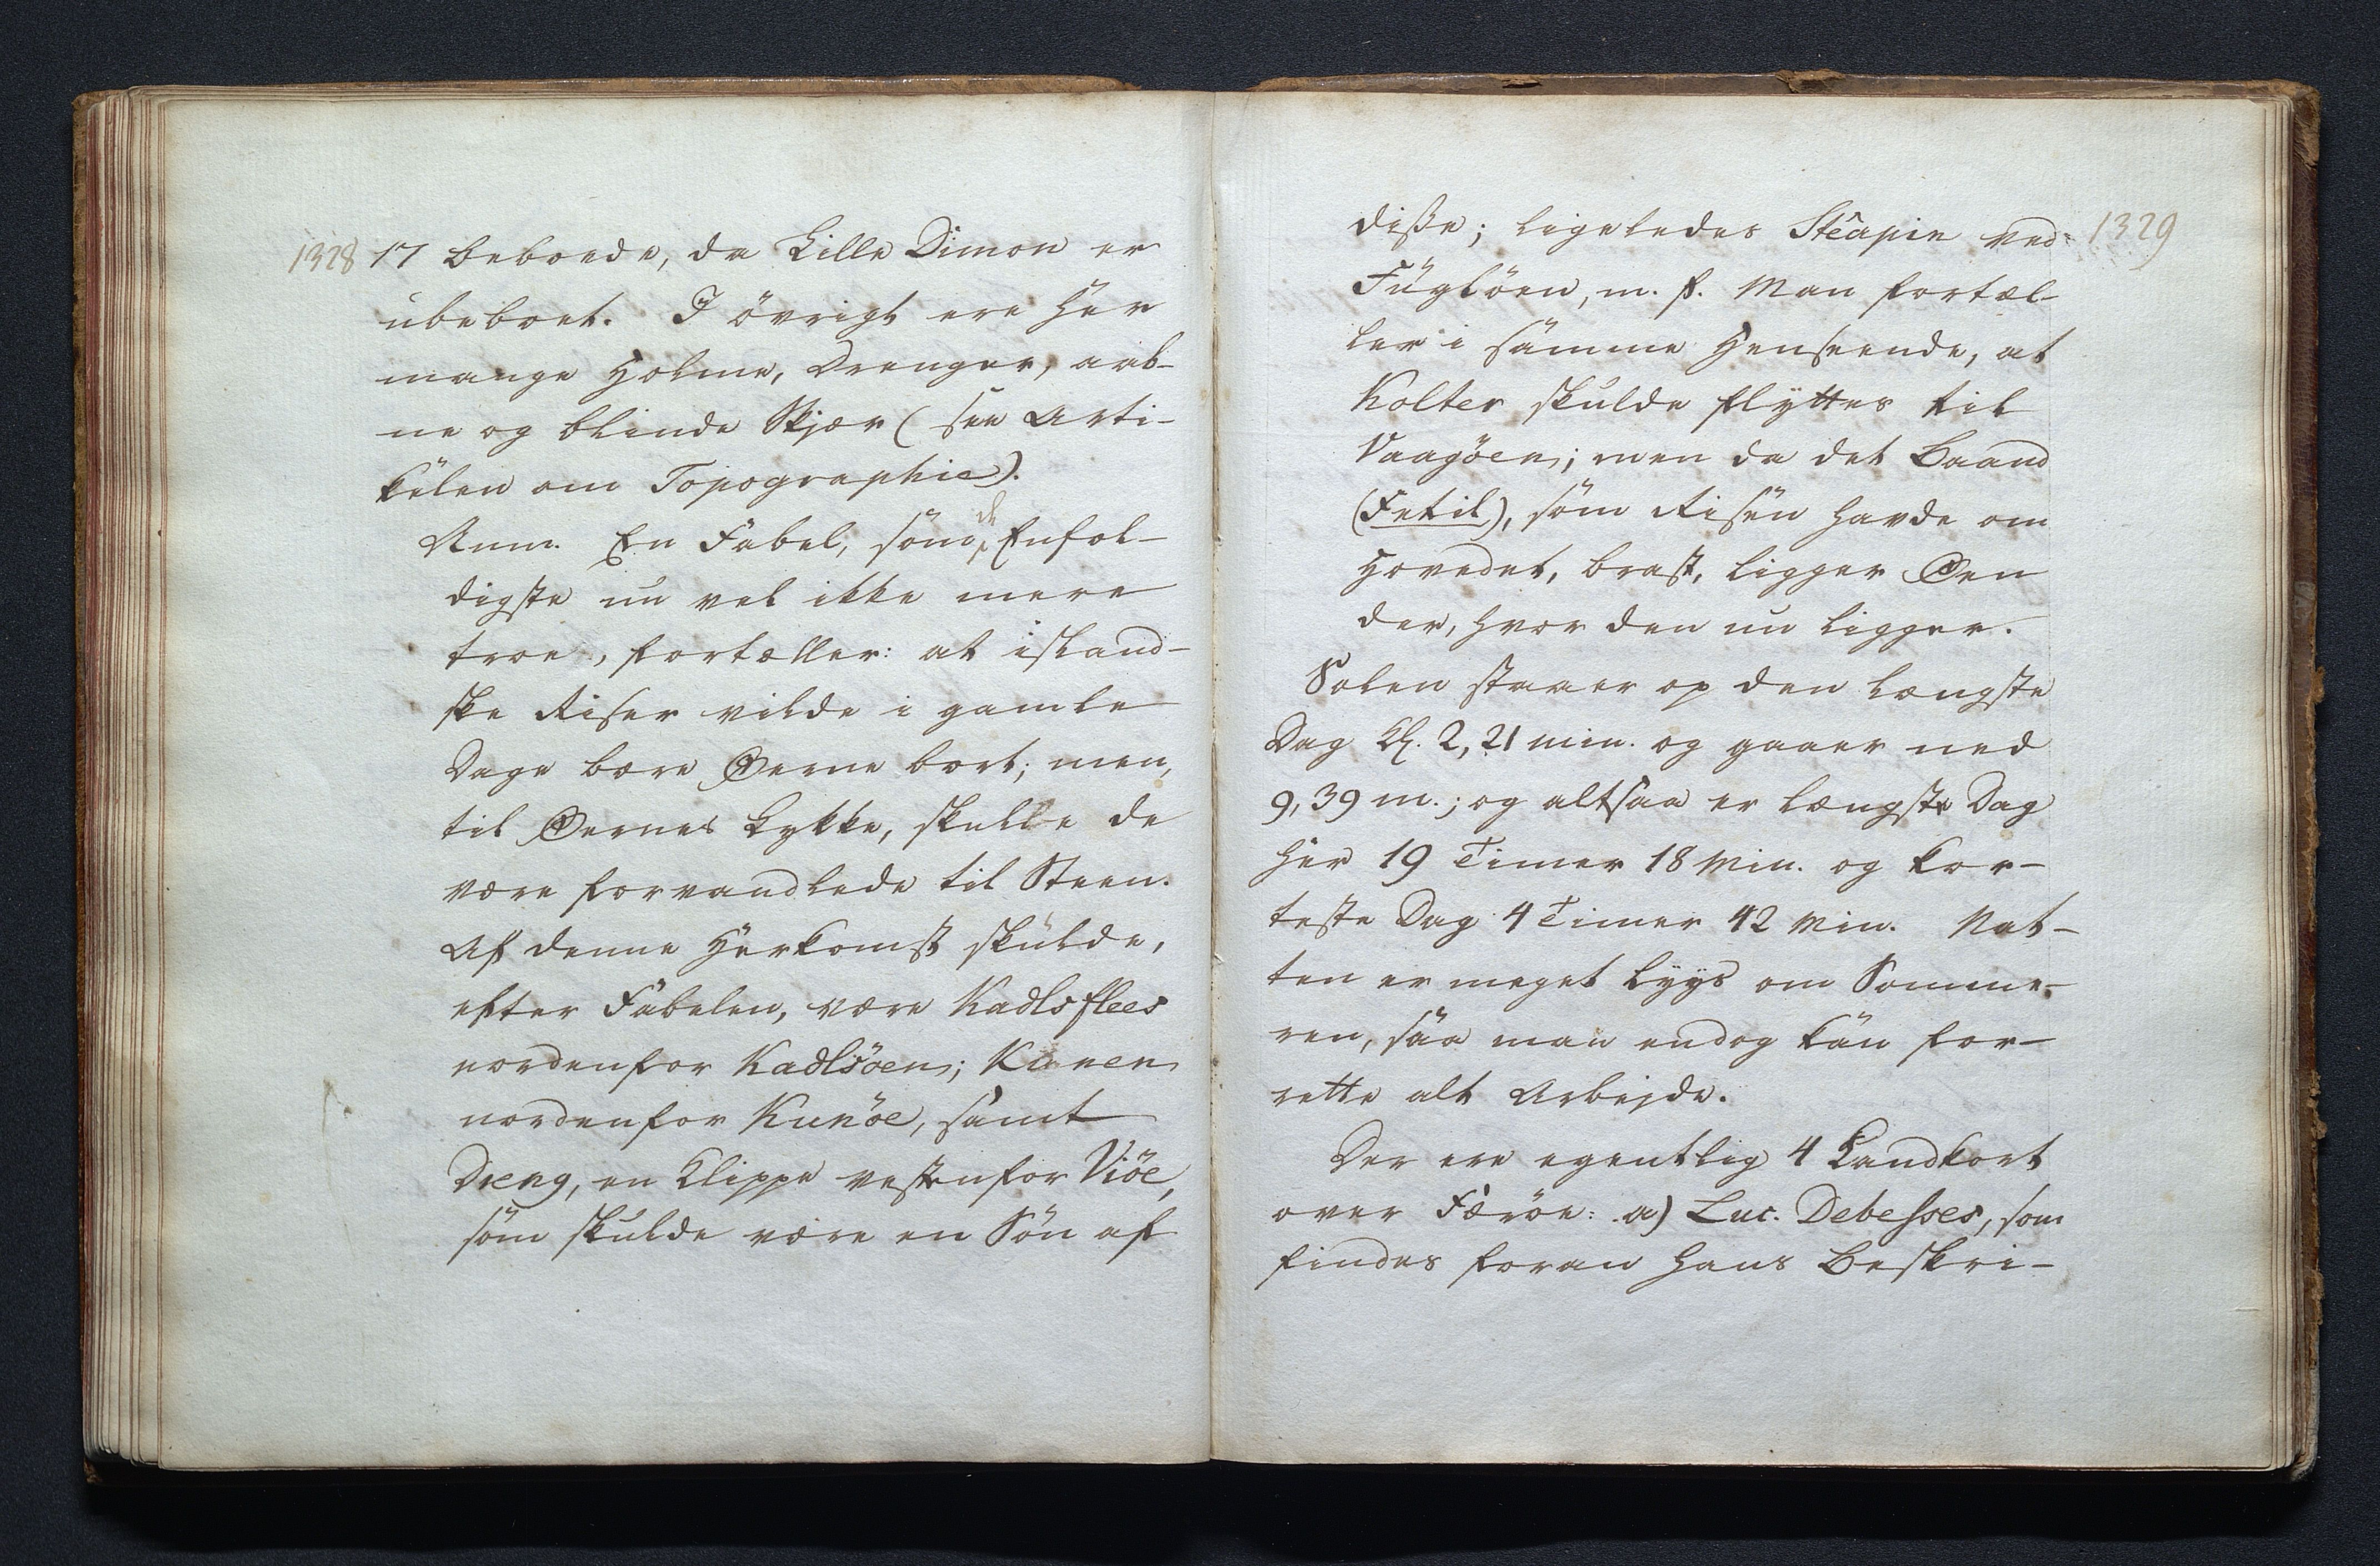 1328
17 beboede, da Lille Dimon er
ubeboet. I övrigt ere her
mange Holme, Drenger, aab-
ne og blinde Skjær (see Arti-
kelen om Topographie).
Anm. En Fabel, som de Enfol-
digste nu vel ikke mere
troe, fortæller: at island-
ske Riser vilde i gamle
Dage bære Øerne bort; men,
til Øernes Lykke, skulle de
være forvandlede til Steen.
Af denne Herkomst skulde,
efter Fabelen, være Kadlsflees
nordenfor Kadlsöen; Konen
nordenfor Kunöe, samt
Dreng, en Klippe vestenfor Viöe,
som skulde være en Sön af
1329
disse; ligeledes Stêapin ved
Fuglöen, m. fl. Man fortæl-
ler i samme Henseende, at
Kolter skulde flyttes til
Vaagöen; men da det Baand
(Fetil), som Risen havde om
Hovedet, brast, ligger Øen
der, hvor den nu ligger.
Solen staaer op den længste
Dag Kl. 2, 21 min. og gaaer ned
9, 39 m.; og altsaa er længste Dag
her 19 Timer 18 Min. og kor-
teste Dag 4 Timer 42 Min. Nat-
ten er meget lyys om Somme-
ren, saa man endog kan for-
rette alt Arbejde.
Der ere egentlig 4 Landkort
over Færöe: a) Luc. Debesses, som
findes foran hans Beskri-